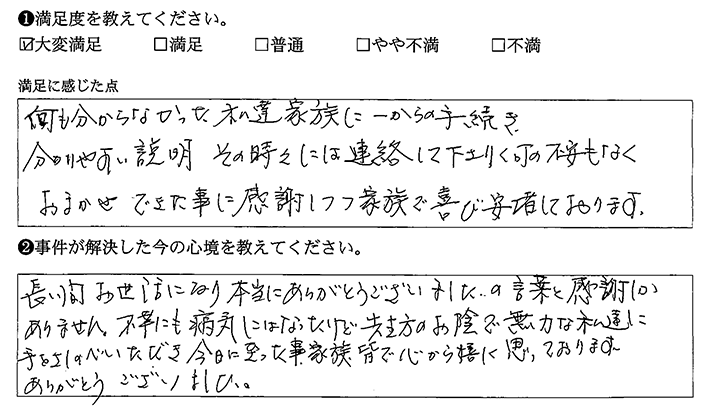 ❶満足度を教えてください。
☑大変満足 □満足 □普通 □やや不満 □不満
満足に感じた点
何も分からなかった私達家族に一からの手続き
分かりや安い説明 その時々には連絡して下さり何の不安もなく
おまかせできた事に感謝しつつ家族で喜び安堵しております。
❷事件が解決した今の心境を教えてください。
長い間お世話になり本当にありがとうございました。の言葉と感謝しか
ありません。不幸にも病気にはなったけど先生方のお陰で無力な私達に
手をさしのべいただき今日に至った事家族皆で心から嬉に思っております
ありがとうございました。